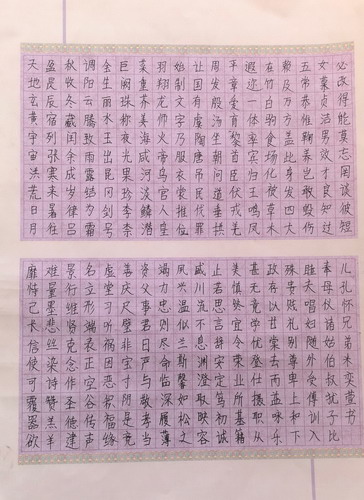 天地玄黄宇宙洪荒日月
盈昃辰宿列张寒来暑往
秋收冬藏闰余成岁律吕
调阳云腾致雨露结为霜
金生丽水玉出昆冈剑号
巨阙珠称夜光果珍李柰
菜重芥姜海咸河淡鳞潜
羽翔龙师火帝鸟官人皇
始制文字乃服衣裳推位
让国有虞陶唐吊民伐罪
周发殷汤坐朝问道垂拱
平章爱育黎首臣伏戎羌
遐迩一体率宾归王鸣凤
在竹白驹食场化被草木
赖及万方盖此身发四大
五常恭惟鞠养岂敢毁伤
女慕贞洁男效才良知过
必改得能莫忘罔谈彼短
靡恃己长信使可覆器欲
难量墨悲丝染诗赞羔羊
景行维贤克念作圣德建
名立形端表正空谷传声
虚堂习听祸因恶积福缘
善庆尺璧非宝寸阴是竞
资父事君曰严与敬孝当
竭力忠则尽命临深履薄
夙兴温似兰斯馨如松之
盛川流不息渊澄取映容
止若思言辞安定笃初诚
美慎终宜令荣业所基籍
甚无竟学优登仕摄职从
政存以甘棠去而益咏乐
殊贵贱礼别尊卑上和下
睦夫唱妇随外受傅训入
奉母仪诸姑伯叔犹子比
儿孔怀兄弟